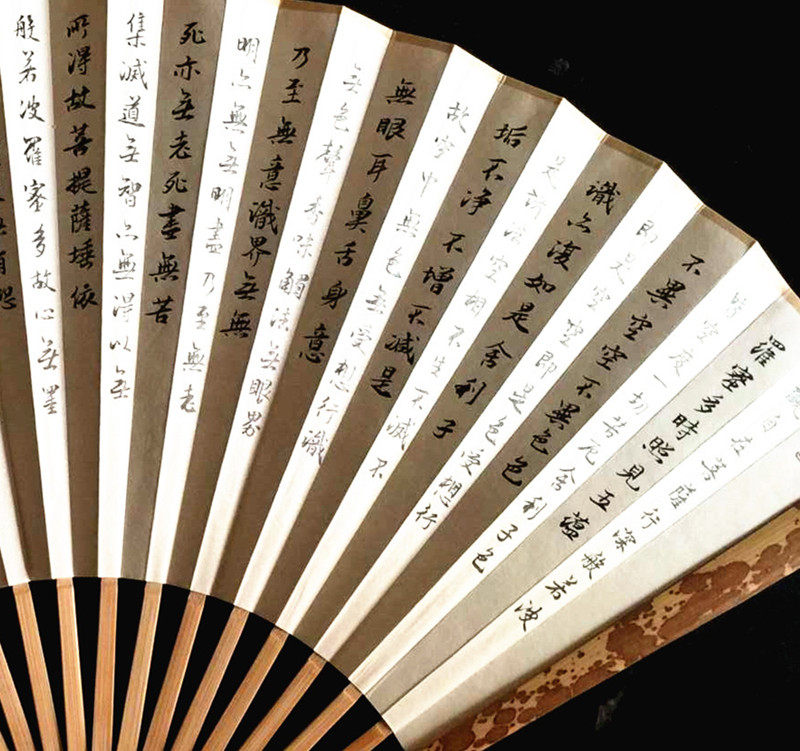 自在菩薩行深般若波
羅蜜多時照見五蘊
皆空度一切苦厄舍利子色
不異空空不異色色
即是空空即是色受想行
識亦復如是舍利子
是諸法空相不生不滅不
垢不净不增不減是
故空中無色無受想行識
無眼耳鼻舌身意
無色聲香味觸法無眼界
乃至無意識界無無
明亦無無明盡乃至無老
死亦無老死盡無苦
集滅道無智亦無得以無
所得故菩提薩埵依
般若波羅蜜多故心無罣
有恐